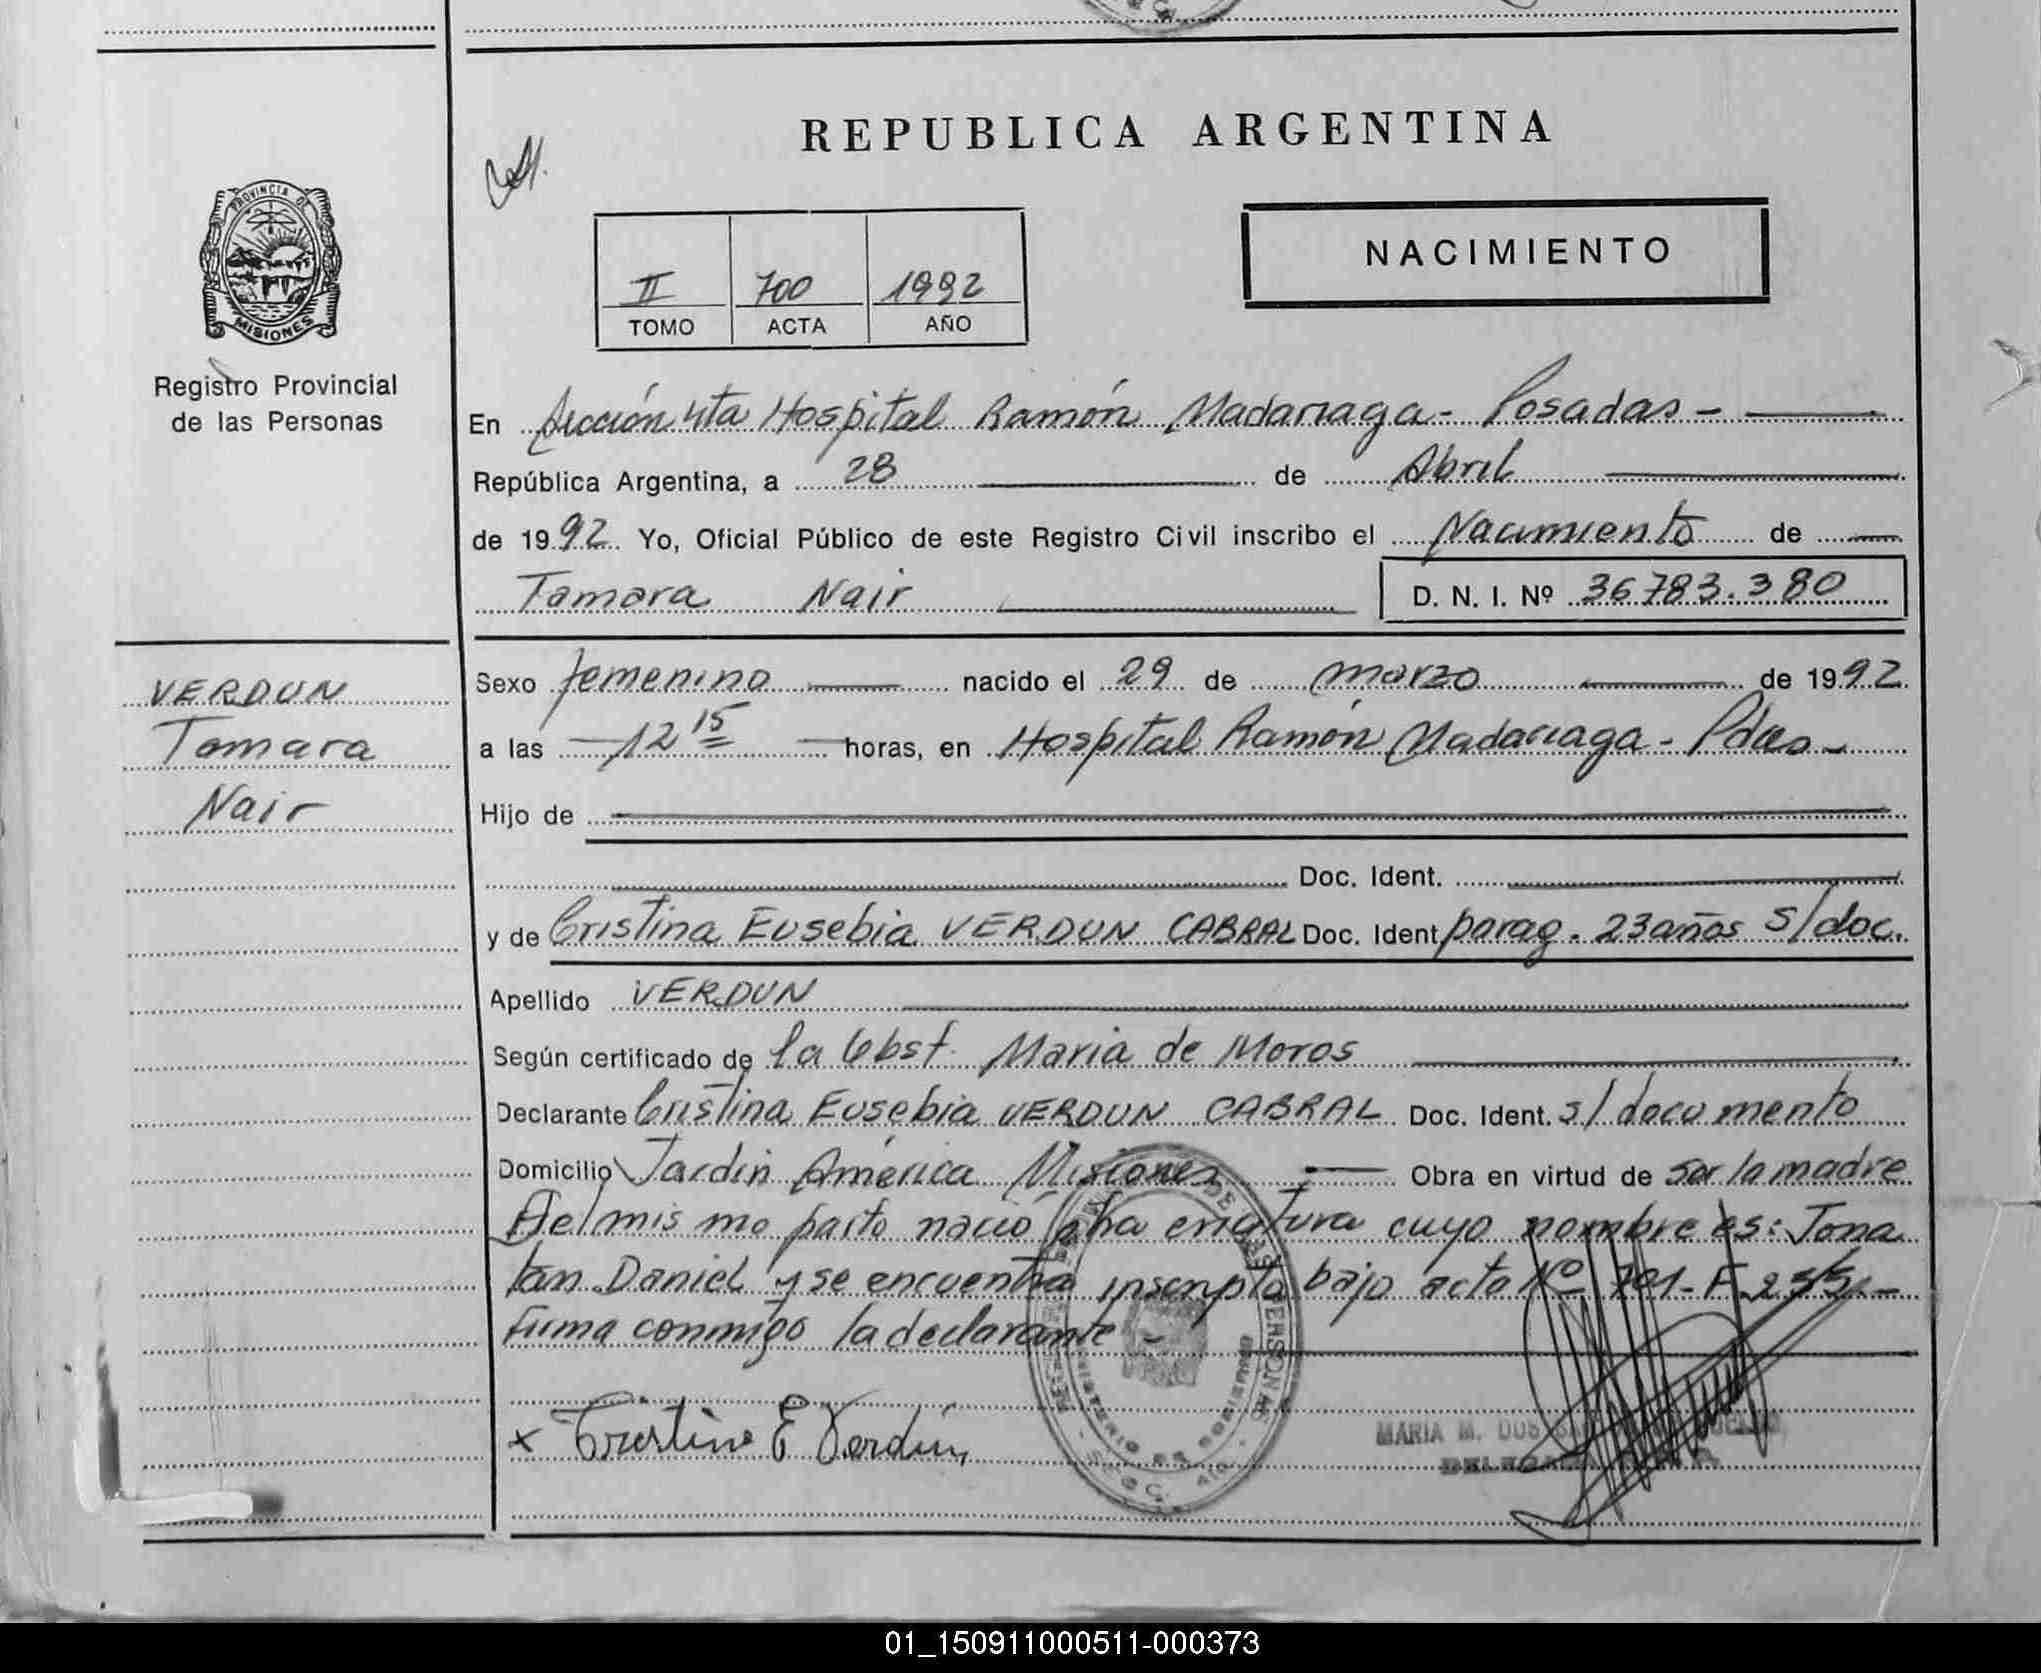 REPUBLICA ARGENTINA
NACIMIENTO
II 700 1992
TOMO ACTA AÑO
PROVINCIA DE
MISIONES
Registro Provincial
de las Personas
En Sección 4ta Hospital Ramón Madariaga - Posadas -
República Argentina, a 28 de Abril
de 1992 Yo, Oficial Público de este Registro Civil inscribo el Nacimiento de
Tamara Nair D. N. I. Nº 36783.380
VERDUN
Tamara
Nair
Sexo femenino nacido el 29 de marzo de 1992
a las 12 15 horas, en Hospital Ramón Madariaga - Pdas -
Hijo de
Doc. Ident.
y de Cristina Eusebia VERDUN CABRAL Doc. Ident parag. 23 años s/doc.
Apellido VERDUN
Según certificado de la Obst. Maria de Moros
Declarante Cristina Eusebia VERDUN CABRAL Doc. Ident. s/documento
Domicilio Jardin América Misiones Obra en virtud de ser la madre
Del mismo parto nació otra criatura cuyo nombre es: Jona
tan Daniel y se encuentra inscripta bajo acta Nº 701 - F
Firma conmigo la declarante -
x Cristina E Verdún
MARIA M. DOS
01_150911000511-000373